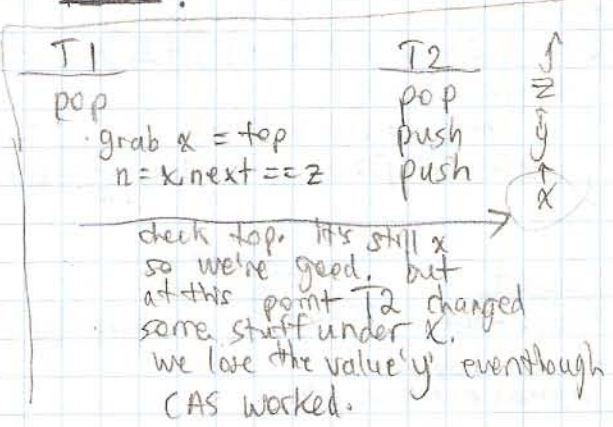 T1 T2
pop pop
grab x = top push
n = x.next == z push
z
y
x
check top. it's still x
so we're good. but
at this point T2 changed
some stuff under x.
we lose the value 'y' eventhough
CAS worked.